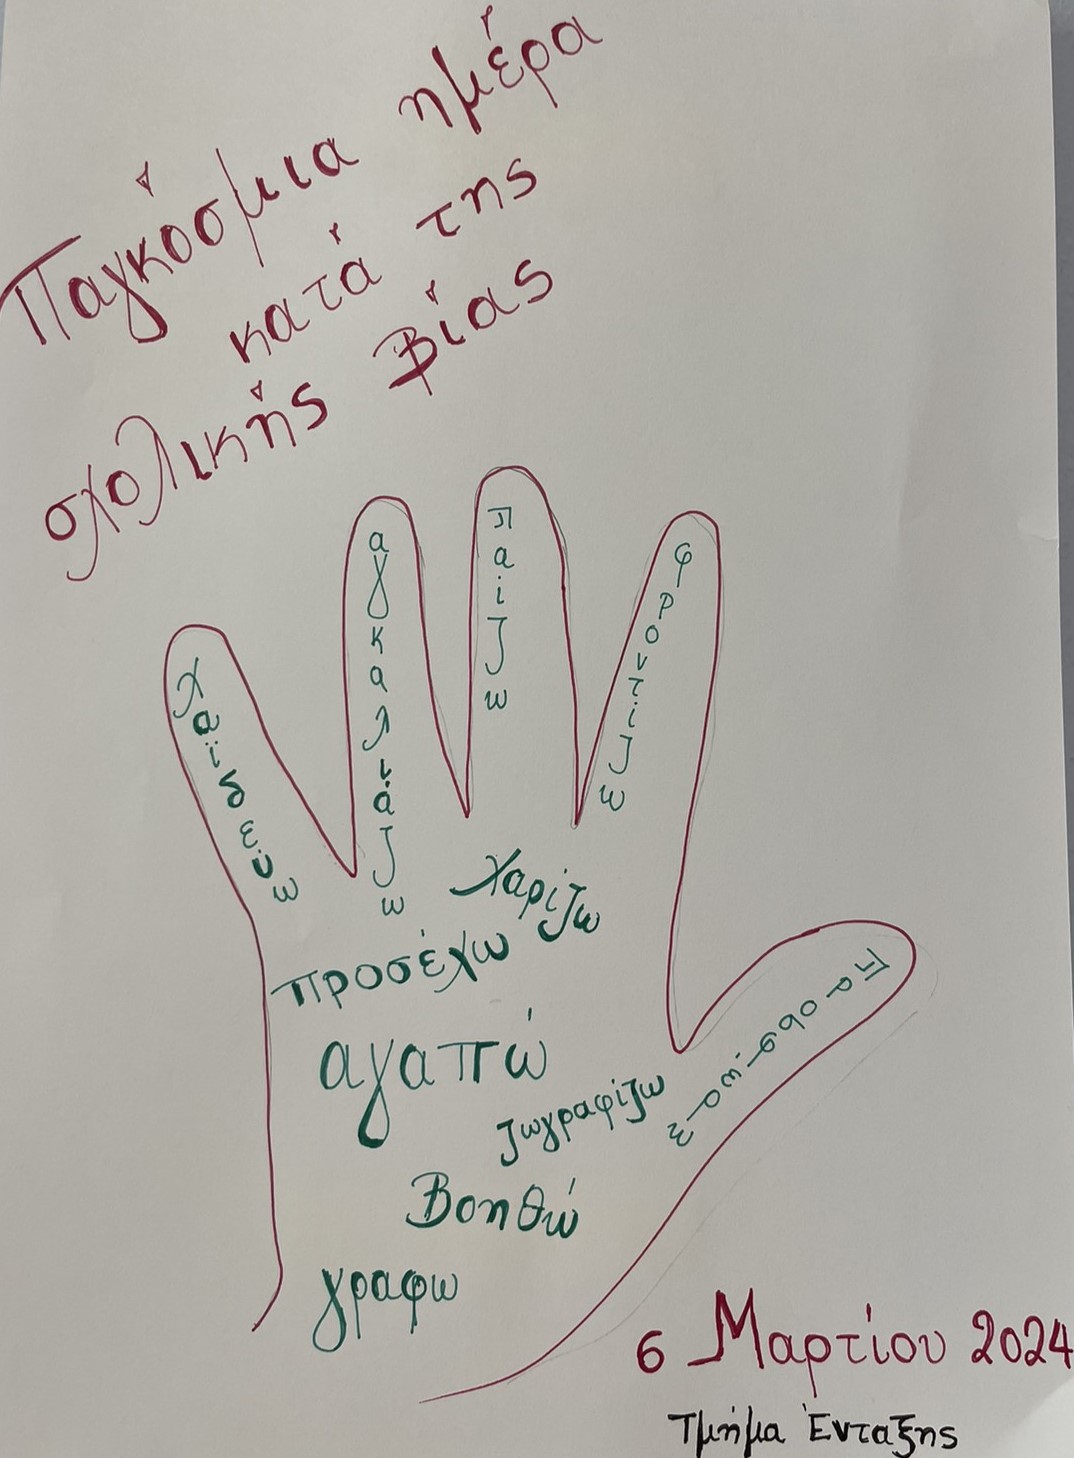 Παγκόσμια ημέρα
κατά της
σχολικής Βίας
χαϊδεύω
αγκαλιάζω
παίζω
φροντίζω
χαρίζω
προσέχω
αγαπώ
ζωγραφίζω
Βοηθώ
γραφω
6 Μαρτίου 2024
Τμήμα Ένταξης